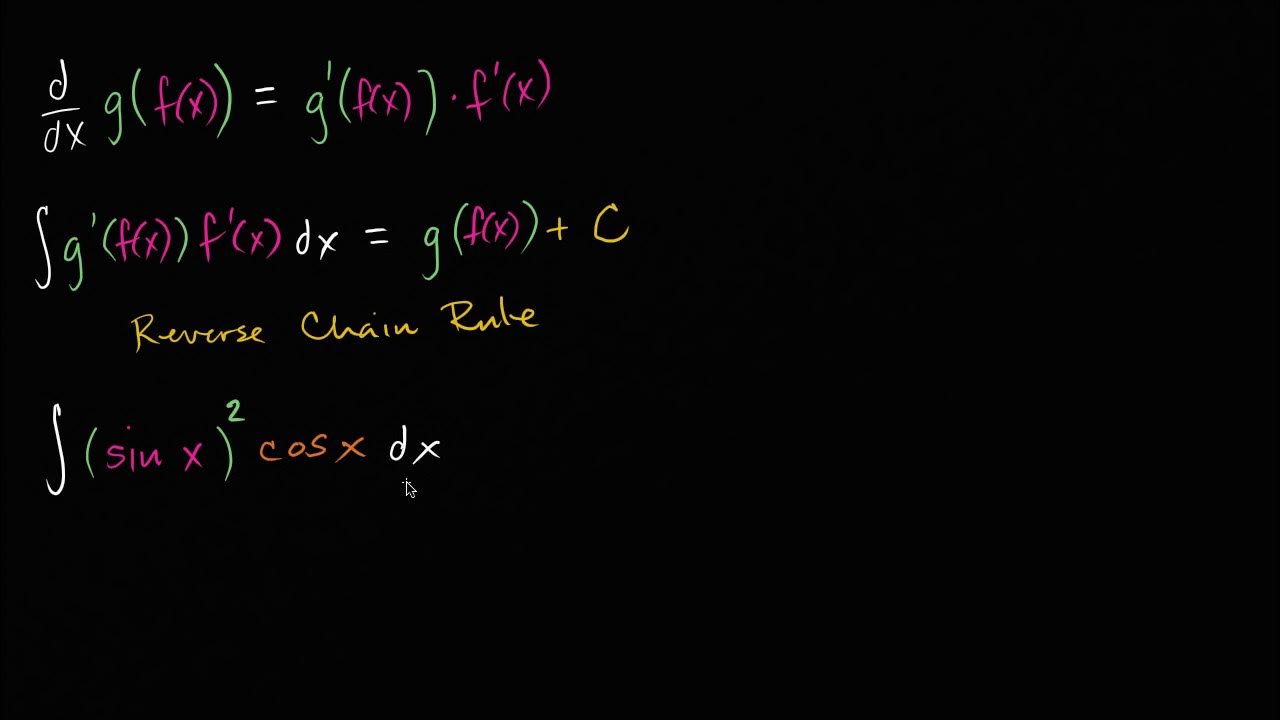 d/dx g(f(x)) = g'(f(x)) · f'(x)
∫ g'(f(x)) f'(x) dx = g(f(x)) + C
Reverse Chain Rule
∫ (sin x)² cos x dx